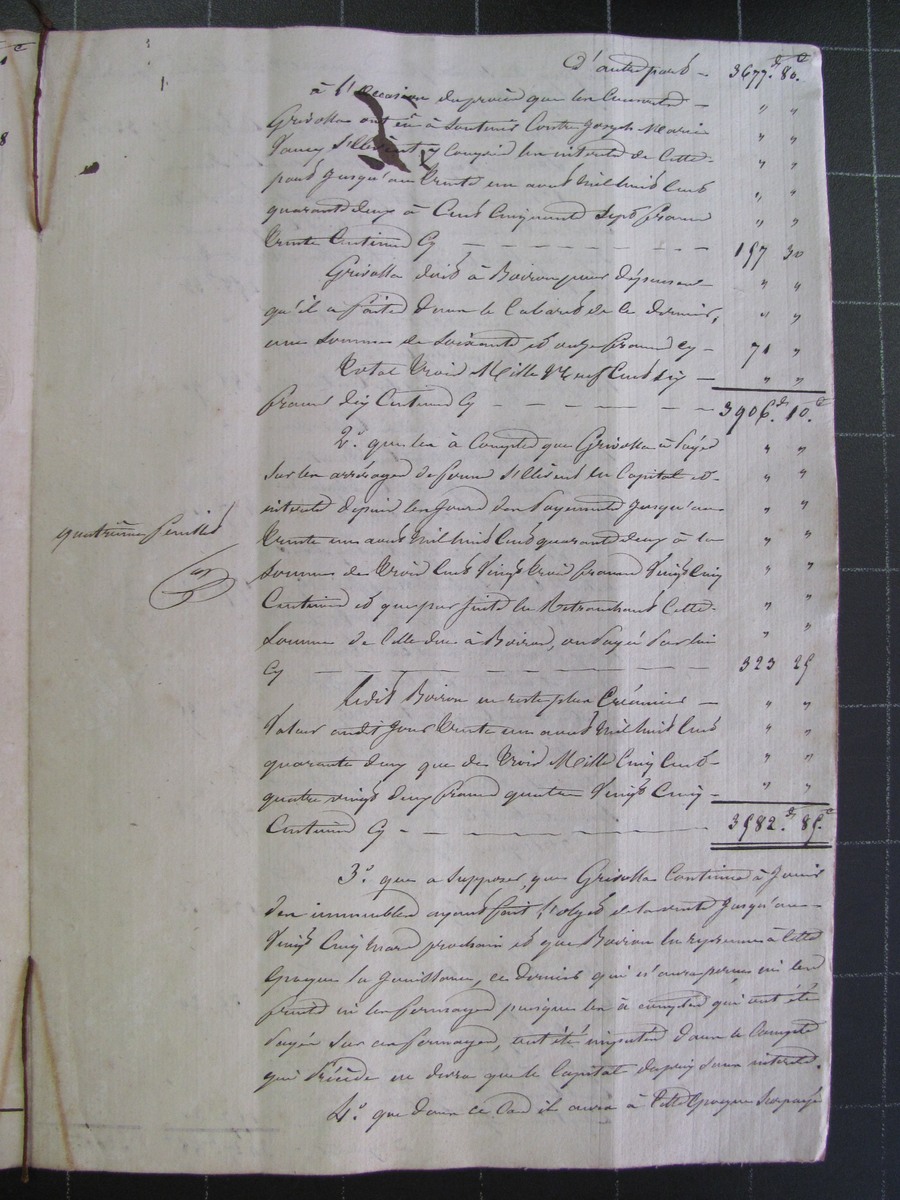 D'autre part — 3677.f 80.c
à l'occasion du procès que les Consorts — " "
Grisolle ont eu à soutenir Contre Joseph Marie " "
y Compris les intérêts de Cette " "
part jusqu'au trente un août Mil huit Cent " "
quarante deux à Cent Cinquante Sept francs " "
trente Centimes Cy — — — 157 30
Grisolle doit à Boiron pour dépenses " "
qu'il a faites dans le Cabaret de ce dernier, " "
une Somme de Soixante et onze francs Cy — 71 "
Total trois Mille Neuf Cent Six — " "
francs dix Centimes Cy — — — 3906.f 10.c
2.° que les à Compte que Grisolle a Payés " "
Sur les arrérages de ferme s'élèvent en Capital et " "
intérêts depuis les jours des Payements jusqu'au " "
trente un août Mil huit Cent quarante deux à la " "
Somme de trois Cent Vingt trois francs Vingt Cinq " "
Centimes et que par suite en Retranchant Cette " "
Somme de Celle due à Boiron, ou Payée Par lui " "
Cy — — — 323 25
quatrième feuillet
Ledit Boiron ne reste plus Créancier — " "
Valeur audit jour trente un août Mil huit Cent " "
quarante deux que de trois Mille Cinq Cent " "
quatre vingt deux francs quatre Vingt Cinq " "
Centimes Cy — — — 3582.f 85.c
3.° que a supposer que Grisolle Continue à Jouir
des immeubles ayant fait l'objet de la vente jusqu'au
Vingt Cinq Mars prochain et que Boiron en reprenne à Cette
époque la Jouissance, ce dernier qui n'aura perçu ni les
fruits ni les fermages puisque les à comptes qui ont été
Payés Sur ces fermages, ont été imputés dans le Compte
qui Précède ne devra que le Capital depuis sans intérêts.
4.° que dans ce Cas il aura à Cette époque